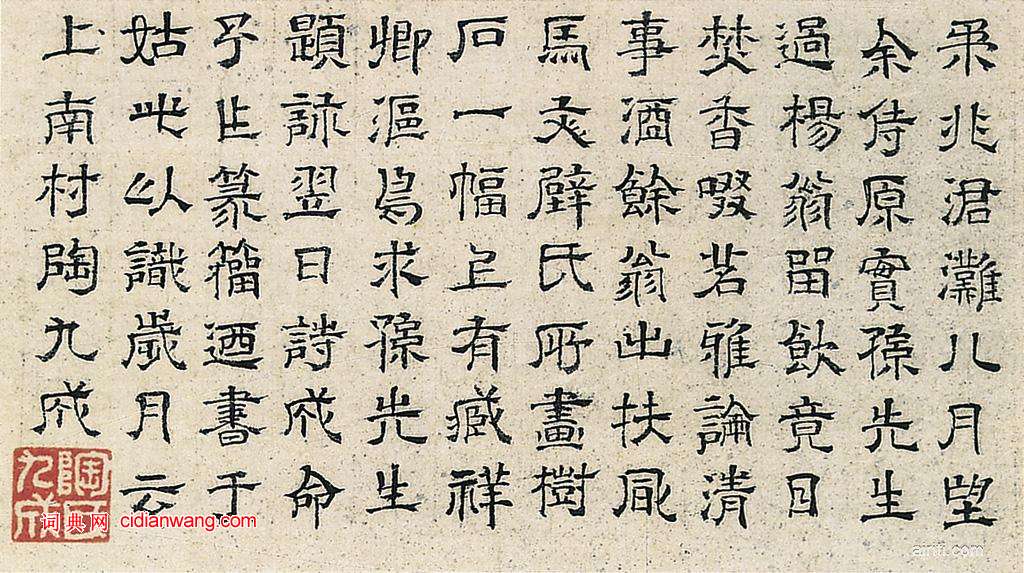 柔兆涒灘八月望
余侍原實孫先生
過楊翁留飲竟日
焚香啜茗雅論清
事酒餘翁出扶風
馬文璧氏所畫樹
石一幅上有藏祥
卿漚為求孫先生
題詠翌日詩成命
予乍篆籀迺書于
姑此以識歲月云
上南村陶九成
陶氏九成
词典网 cidianwang.com